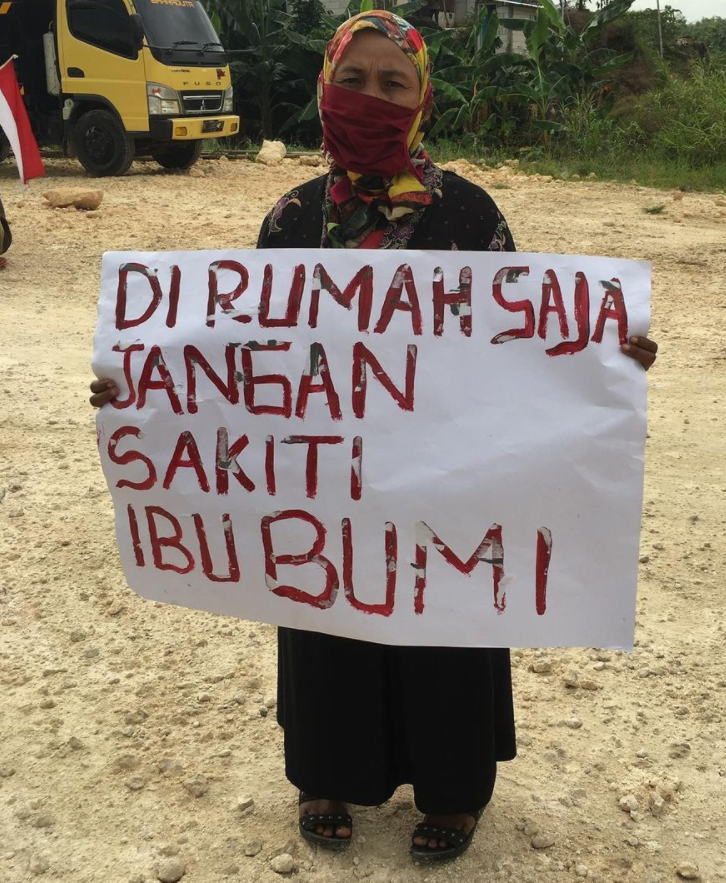 FUSO
DI RUMAH SAJA
JANGAN
SAKITI
IBU BUMI